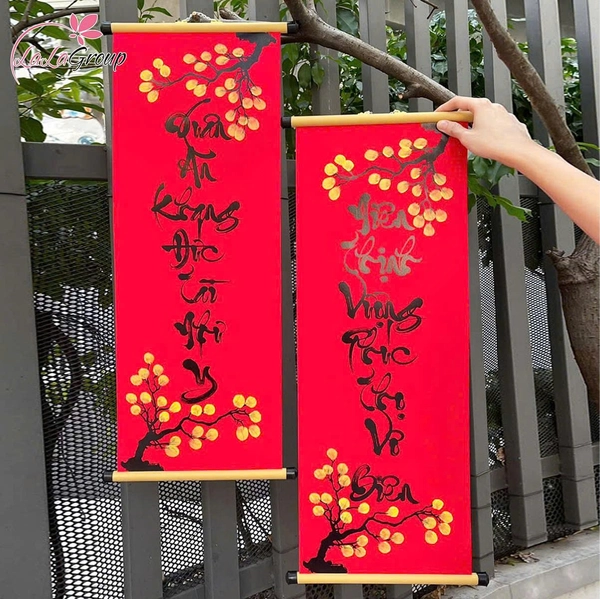 LaLaGroup
Xuân
An
Khang
Đức
Lộc
Như
Ý
Niên
Thịnh
Vượng
Phúc
Thọ
Vô
Biên